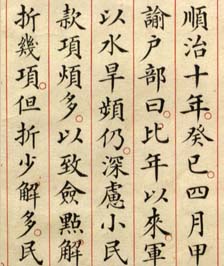 順治十年癸巳四月甲
諭户部曰比年以來軍
以水旱頻仍深慮小民
款項煩多以致僉點解
折幾項但折少解多民